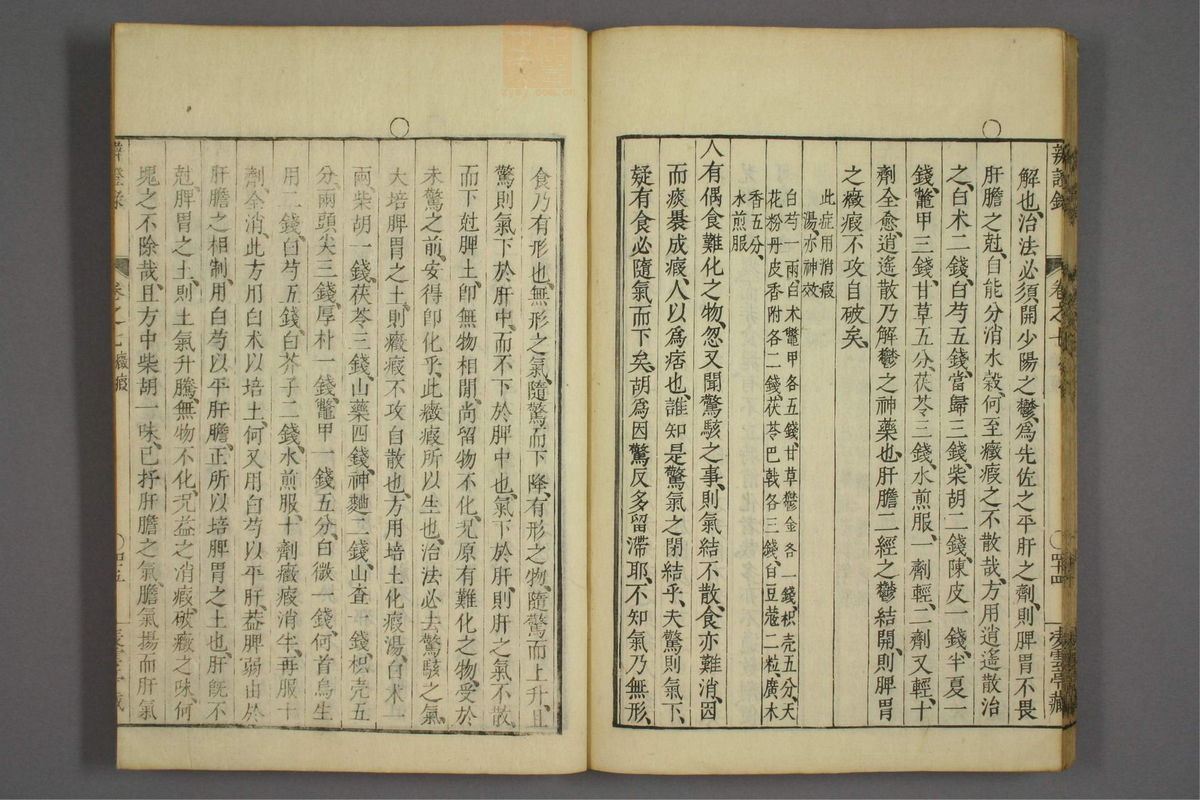 解也、治法必須開少陽之鬱、爲先佐之平肝之劑、則脾胃不畏
肝膽之尅、自能分消水穀、何至癥瘕之不散哉、方用逍遙散治
之、白术二錢、白芍五錢、當歸三錢、柴胡二錢、陳皮一錢、半夏一
錢、鼈甲三錢、甘草五分、茯苓三錢、水煎服、一劑輕、二劑又輕、十
劑全愈、逍遙散乃解鬱之神藥也、肝膽二經之鬱結開、則脾胃
之癥瘕不攻自破矣、
此症用消瘕
湯亦神效
白芍一兩白术鼈甲各五錢、甘草鬱金各一錢、枳壳五分、天
花粉丹皮香附各二錢、茯苓巴戟各三錢、白豆蔻二粒、廣木
香五分、
水煎服
人有偶食難化之物、忽又聞驚駭之事、則氣結不散、食亦難消、因
而痰裹成瘕、人以爲痞也、誰知是驚氣之閉結乎、夫驚則氣下、
疑有食必隨氣而下矣、胡爲因驚反多留滯耶、不知氣乃無形、
辨證錄
卷之七
四十四
食乃有形也、無形之氣、隨驚而下降、有形之物、隨驚而上升、且
驚則氣下於肝中、而不下於脾中也、氣下於肝、則肝之氣不散、
而下尅脾土、卽無物相間、尚留物不化、况原有難化之物、受於
未驚之前、安得卽化乎、此癥瘕所以生也、治法必去驚駭之氣、
大培脾胃之土、則癥瘕不攻自散也、方用培土化瘕湯、白术一
兩、柴胡一錢、茯苓三錢、山藥四錢、神麯二錢、山查一錢、枳壳五
分、兩頭尖三錢、厚朴一錢、鼈甲一錢五分、白微一錢、何首烏生
用二錢、白芍五錢、白芥子二錢、水煎服、十劑癥瘕消半、再服十
劑、全消、此方用白术以培土、何又用白芍以平肝、蓋脾弱由於
肝膽之相制、用白芍以平肝膽、正所以培脾胃之土也、肝旣不
尅脾胃之土、則土氣升騰、無物不化、况益之消瘕破癥之味、何
塊之不除哉、且方中柴胡一味、已抒肝膽之氣、膽氣揚而肝氣
卷之七 癥瘕
四十五